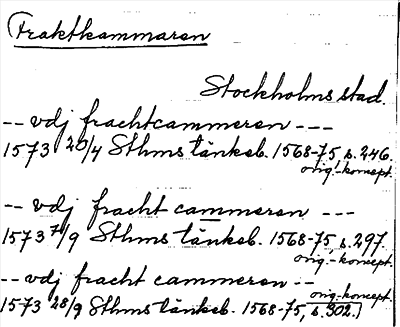 Fraktkammaren
Stockholms stad.
-- vdj frachtcammeren ---
1573 20/4 Sthms tänkeb. 1568-75, s. 246.
orig.-koncept.
-- vdj fracht cammeren ---
1573 7/9 Sthms tänkeb. 1568-75, s. 297.
orig.-koncept.
-- vdj fracht cammeren --
orig.-koncept.
1573 28/9 Sthms tänkeb. 1568-75, s. 302.)